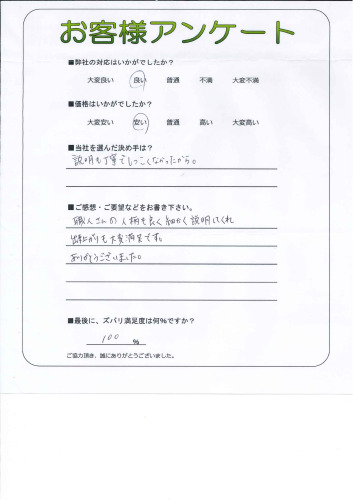 お客様アンケート
■弊社の対応はいかがでしたか?
大変良い 良い 普通 不満 大変不満
■価格はいかがでしたか?
大変安い 安い 普通 高い 大変高い
■当社を選んだ決め手は?
説明も丁寧でしつこくなかったから。
■ご感想・ご要望などをお書き下さい。
職人さんの人柄も良く細かく説明してくれ
出来上がりも大変満足です。
ありがとうございました。
■最後に、ズバリ満足度は何%ですか?
100 %
ご協力頂き、誠にありがとうございました。